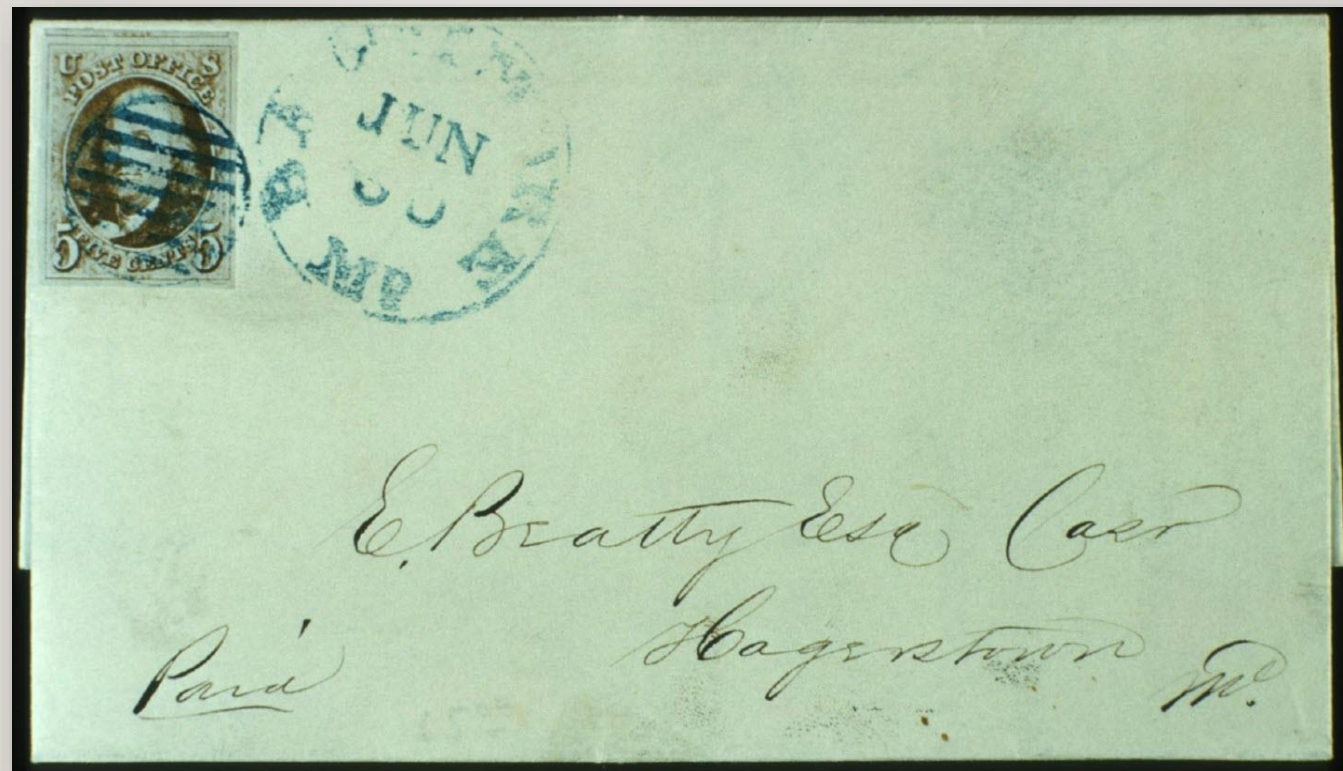 U S
POST OFFICE
FIVE CENTS
5 5
JUN
MD
E. Beatty Esq Casr
Hagerstown
Md.
Paid